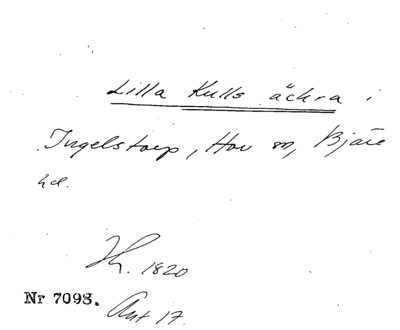 Lilla Kulls åckra i
Ingelstorp, Hov sn, Bjäre
hd.
1820
Nr 7098.
Akt 17.